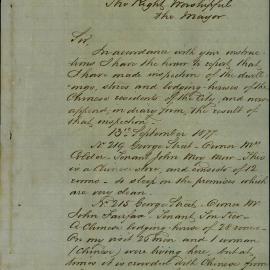 The Right Worshipful
the Mayor
Sir,
In accordance with your instruc-
tions I have the honor to report that
I have made inspection of the dwell-
ings, stores and lodging-houses of the
Chinese residents of the City, and now
append, in diary form, the result of
that inspection.
13th September 1877.
No 219 George Street - Owner Mrs
Tenant John Moy Mow - This
is a Chinese store, and consists of 12
rooms - 4 sleep on the premises which
are very clean.
No 215 George Street - Owner Mr
John Fairfax - Tenant
A Chinese lodging house of 28 rooms -
On my visit 26 men and 1 woman
(Chinese) were living here, but at
times it is crowded with Chinese from